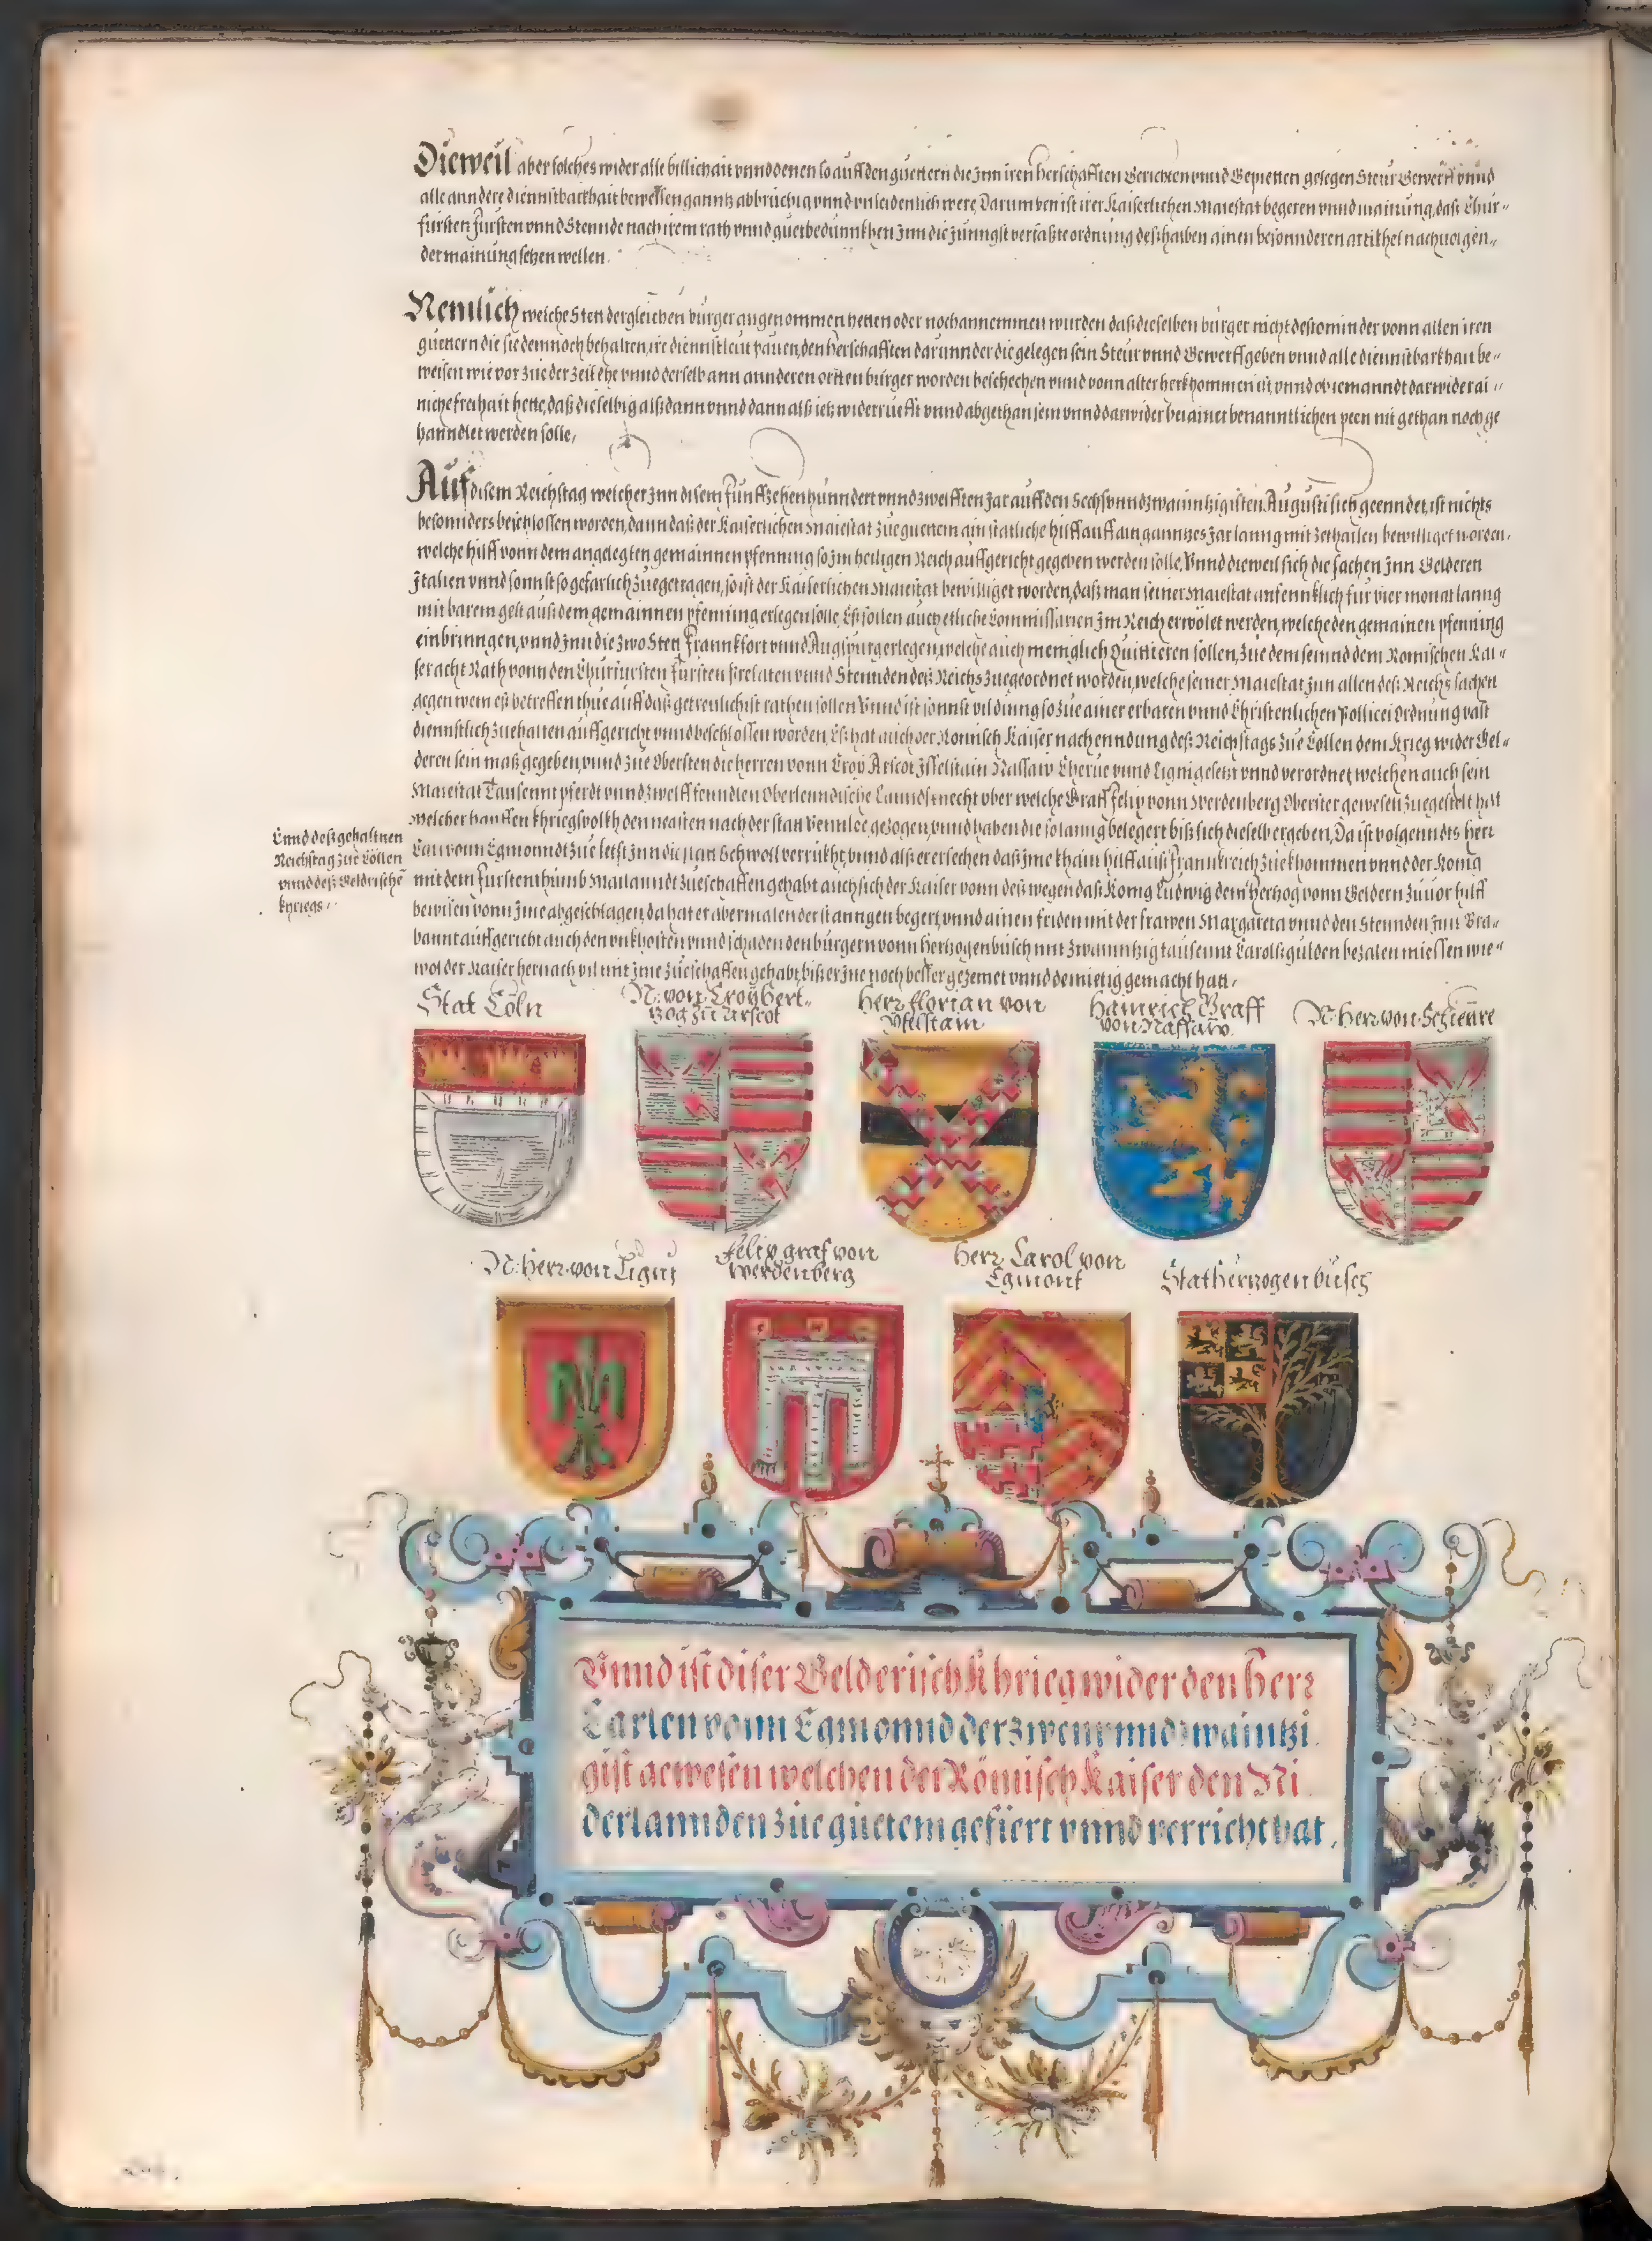 Dieweil aber solches wider alle billichait vnnd denen so auff den guettern die Inn iren herschafften Gerichten vnnd Gepietten gelegen Steur Gewerff vnnd
alle anndere diennstbarkhait beweissen ganntz abbrüchig vnnd vnleidenlich were, Darumben ist irer Kaiserlichen Maiestat begeren vnnd mainung, das Chur-
fürsten Fürsten vnnd Stennde nach irem rath vnnd guetbedünnkhen Inn die Jünngst verfaßte ordnung deßhalben ainen besonnderen artikhel nachuolgen-
der mainung setzen wellen.
Nemlich welche Stett dergleichen burger angenommen hetten oder noch annemmen wurden das dieselben burger nicht destominder vonn allen iren
guettern die sie dennoch behalten, ire diennstleut pauen, den herschafften darunnder die gelegen sein Steur vnnd Gewerff geben vnnd alle diennstbarkhait be-
weisen wie vor zue der zeit ehe vnnd derselb ann annderen ortten burger worden beschechen vnnd vonn alter herkhommen ist, vnnd ob iemanndt darwider ai-
niche freihait hette, daß dieselbig alß dann vnnd dann alß ietz widerruefft vnnd abgethan sein vnnd darwider bei ainer benanntlichen peen nit gethan noch ge
hanndlet werden solle,
Auf disem Reichstag welcher Inn disem Funffzehenhunndert vnnd zwelfften Jar auff den Sechsvnndzwaintzigisten Augusti sich geenndet, ist nichts
besonnders beschlossen worden, dann daß der Kaiserlichen Maiestat zue guettem ain statliche hilff auff ain ganntzes Jar lanng mit zethailen bewilliget worden,
welche hilff vonn dem angelegten gemainnen pfenning so Im heiligen Reich auffgericht gegeben werden solle, Vnnd dieweil sich die sachen Inn Gelderen
Italien vnnd sonnst so gefarlich zuegetragen, so ist der Kaiserlichen Maiestat bewilliget worden, daß man seiner Maiestat anfennklich fur vier monat lanng
mit barem gelt auß dem gemainnen pfenning erlegen solle, Es sollen auch etliche Commissarien Im Reich erwölet werden, welche den gemainen pfenning
einbrinngen, vnnd Inn die zwo Stett Frannkfort vnnd Augspurg erlegen, welche auch meniglich Quittieren sollen, zue dem seinnd dem Romischen Kai-
ser acht Rath vonn den Churfursten Fursten Prelaten vnnd Stennden deß Reichs zuegeordnet worden, welche seiner Maiestat Inn allen deß Reichs sachen
gegen wem eß betreffen thue auff daß getreulichist rathen sollen Vnnd ist sonnst vil dinng so zue ainer erbaren vnnd Christenlichen Pollicei Ordnung vast
diennstlich zuehalten auffgericht vnnd beschlossen worden, Es hat auch der Romisch Kaiser nach enndung deß Reichstags zue Cöllen dem krieg wider Gel-
deren sein maß gegeben, vnnd zue Obersten die herren vonn Croy Arscot Isselstain Nassaw Cherue vnnd Ligni gesetzt vnnd verordnet, welchen auch sein
Maiestat Tausennt pferdt vnnd zwelff fenndlen Oberlenndische Lanndsknecht vber welche Graff Felix vonn Werdenberg Oberster gewesen zuegestelt hat
welcher hauffen khriegsvolkh den negsten nach der statt Vennloe gezogen, vnnd haben die so lanng belegert biß sich dieselb ergeben, Da ist volgenndts herr
Carl vonn Egmonndt zue letst Inn die statt Schwoll verrukht, vnnd alß er ersechen daß Ime khain hilff auß Frannkreich zuekhommen vnnd der Konig
mit dem Furstenthumb Mailanndt zueschaffen gehabt auch sich der Kaiser vonn deß wegen daß Konig Ludwig dem hertzog vonn Geldern zuuor hilff
bewisen vonn Ime abgeschlagen, da hat er abermalen der stanngen begert, vnnd ainen friden mit der frawen Margareta vnnd den Stennden Inn Bra-
bannt auffgericht auch den vnkhosten vnnd schaden den burgern vonn hertzogenbusch mit zwainntzig tausennt Carolsgulden bezalen miessen wie-
wol der Kaiser hernach vil mit Ime zueschaffen gehabt, biß er Ine noch besser gezemet vnnd demietig gemacht hatt,
Ennd deß gehaltnen
Reichstag zue Cöllen
vnnd deß Geldrischen
khriegs.
Stat Cöln
N. von Croy hert-
zog zu Arscot
Herr Florian von
Yselstain
Hainrich Graff
von Nassaw
N. Herr von Schierre
N. Herr von Ligni
Felix graf von
Werdenberg
Herr Carol von
Egmont
Stat hertzogenbusch
Vnnd ist diser Gelderisch Khrieg wider den herr
Carlen vonn Egmonnd der zwenvnndzwaintzi
gist gewesen welchen der Römisch Kaiser den Ni
derlannden zue guetem gefiert vnnd verricht hat,